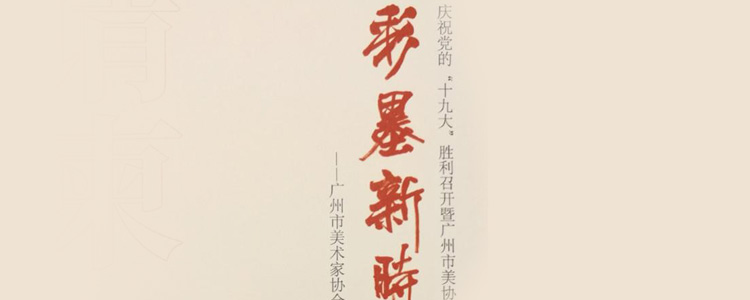 庆祝党的“十九大”胜利召开暨广州市美协
彩墨新時
——广州市美术家协会